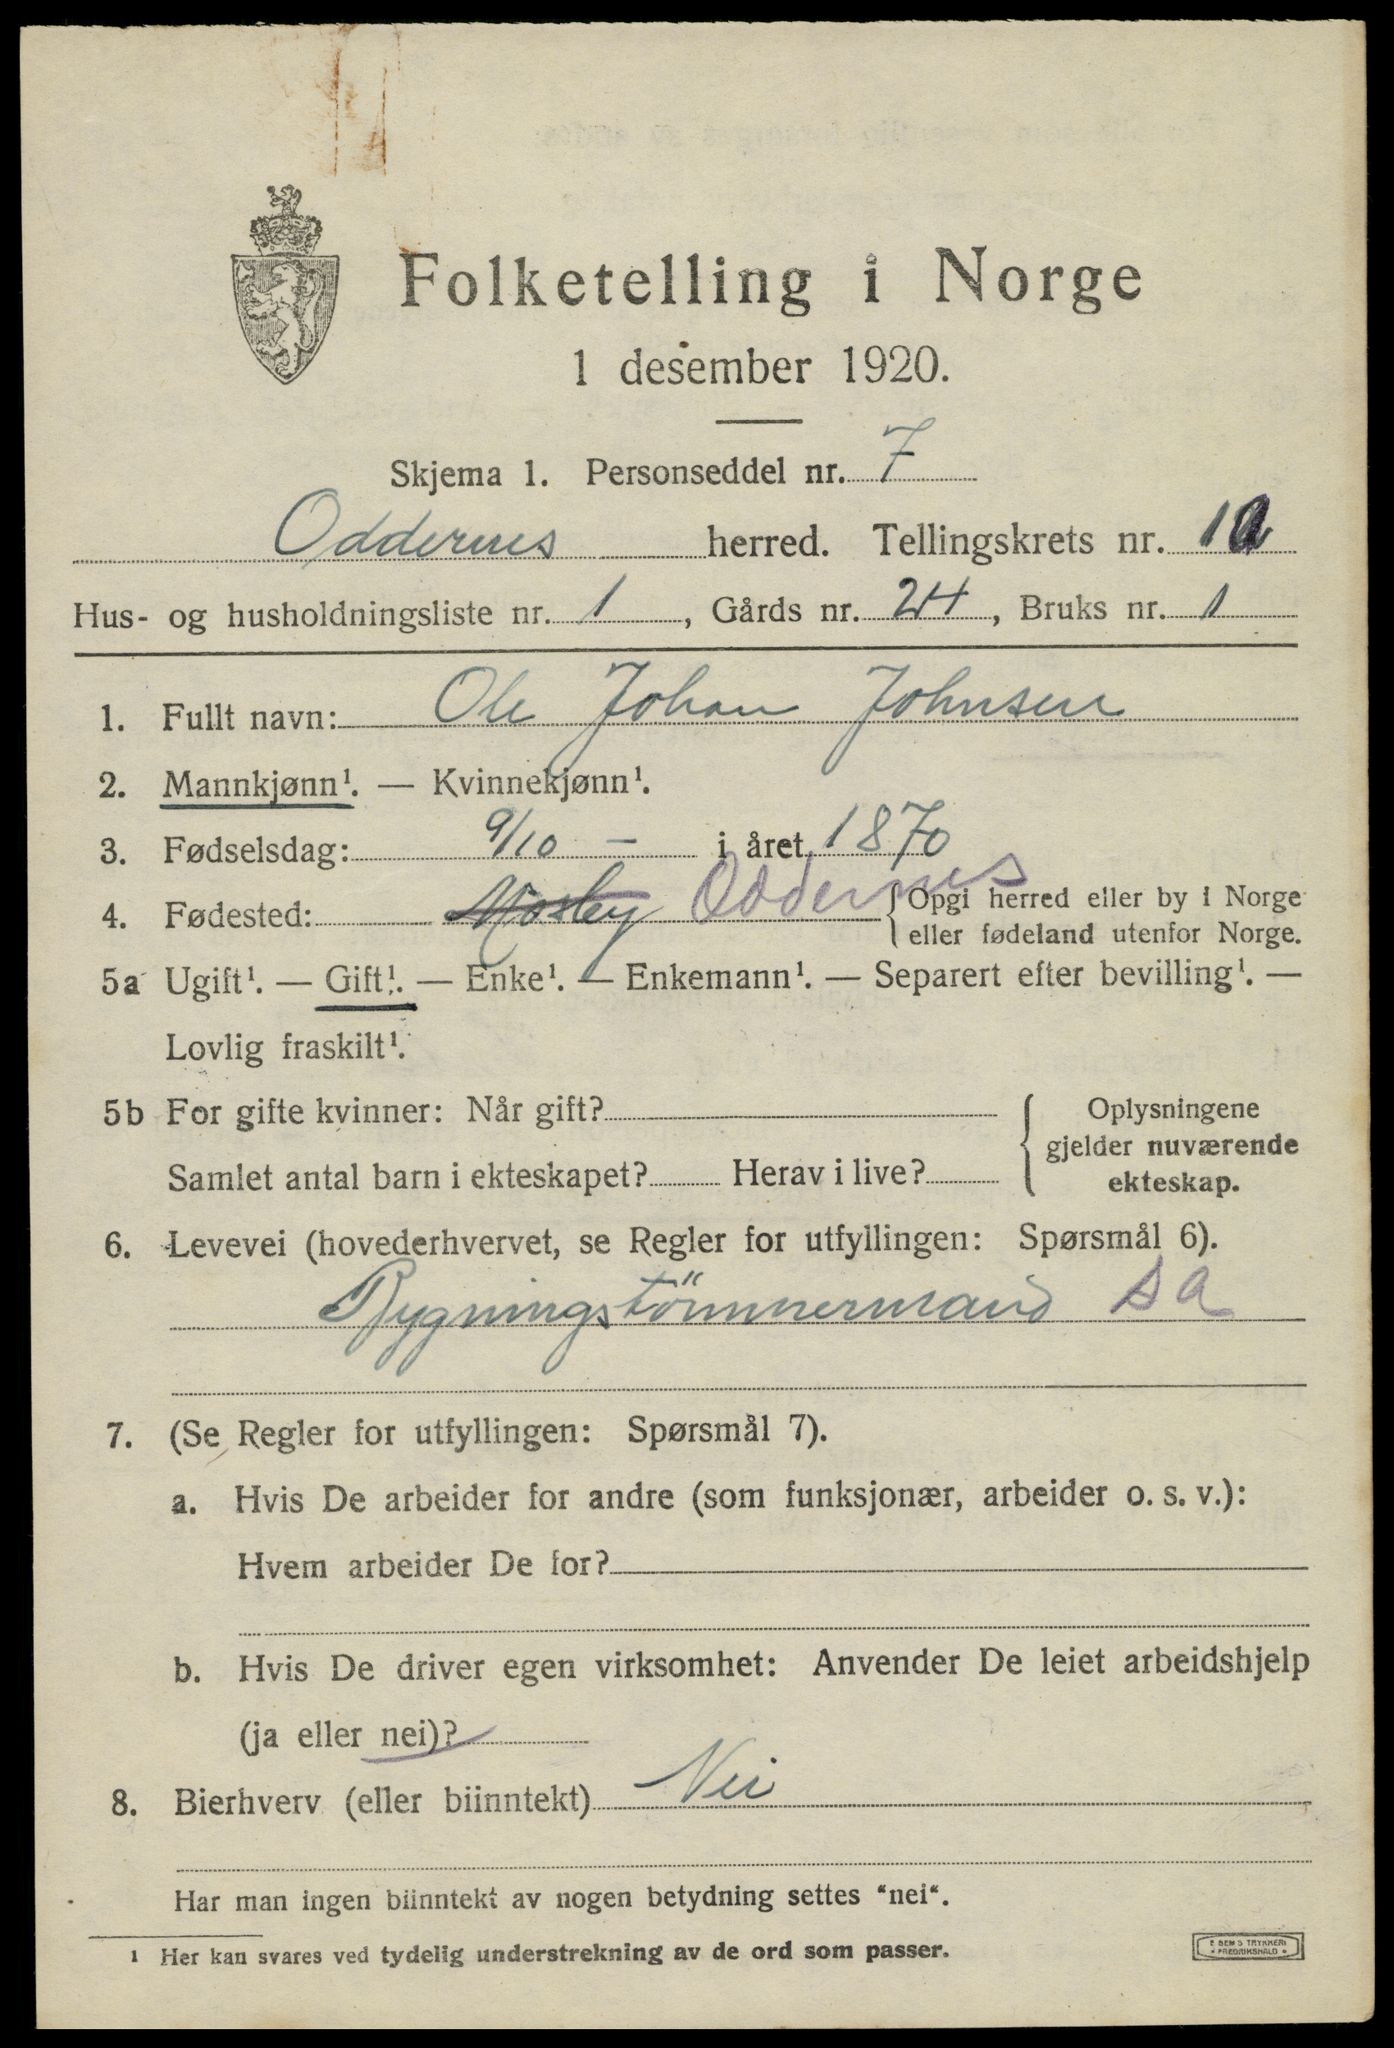 Folketelling i Norge
1 desember 1920.
Skjema 1. Personseddel nr. 7
Oddernes herred. Tellingskrets nr. 1a
Hus- og husholdningsliste nr. 1, Gårds nr. 24, Bruks nr. 1
1. Fullt navn: Ole Johan Johnsen
2. Mannkjønn¹. — Kvinnekjønn¹.
3. Fødselsdag: 9/10 – i året 1870
4. Fødested: Mosby Oddernes {Opgi herred eller by i Norge
eller fødeland utenfor Norge.
5a Ugift¹. — Gift¹. — Enke¹. — Enkemann¹. — Separert efter bevilling¹. —
Lovlig fraskilt¹.
5b For gifte kvinner: Når gift?
Samlet antal barn i ekteskapet? Herav i live?
Oplysningene
gjelder nuværende
ekteskap.
6. Levevei (hovederhvervet, se Regler for utfyllingen: Spørsmål 6).
Bygningstömmermand s a
7. (Se Regler for utfyllingen: Spørsmål 7).
a. Hvis De arbeider for andre (som funksjonær, arbeider o. s. v.):
Hvem arbeider De for?
b. Hvis De driver egen virksomhet: Anvender De leiet arbeidshjelp
(ja eller nei)?
8. Bierhverv (eller biinntekt) Nei
Har man ingen biinntekt av nogen betydning settes "nei".
¹ Her kan svares ved tydelig understrekning av de ord som passer.
FREDRIKSHALD